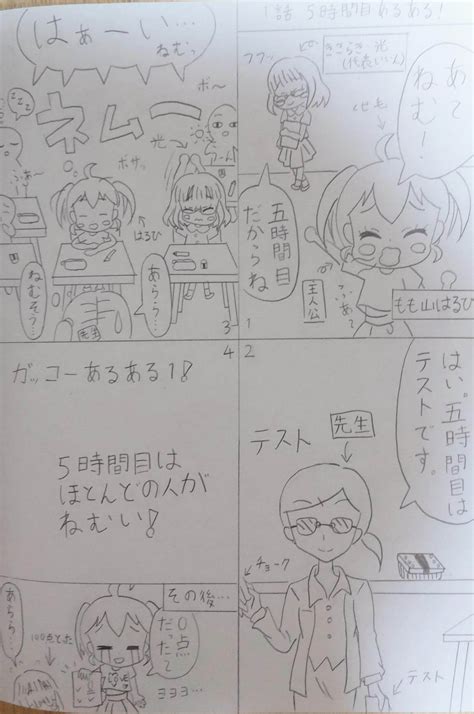 1話 5時間目あるある!
あ~
ねむ!
ピ°
きさらぎ 光
(代表いいん)
フフッ
くせ毛
五時間目
だからね
ふぁ~
主人公
もも山はるひ
1
2
はい。五時間目は
テストです。
先生
テスト
チョーク
テスト
はぁーい…
ねむっ
zzz
ボ~
ネムー
光→
ボサッ
ふぁ~
はるひ
あらう…
ねむそう…
先生
3
4
ガッコーあるある1!
5時間目は
ほとんどの人が
ねむい!
その後…
0点
だったって
ヨヨヨ…
100点とった
あらら…